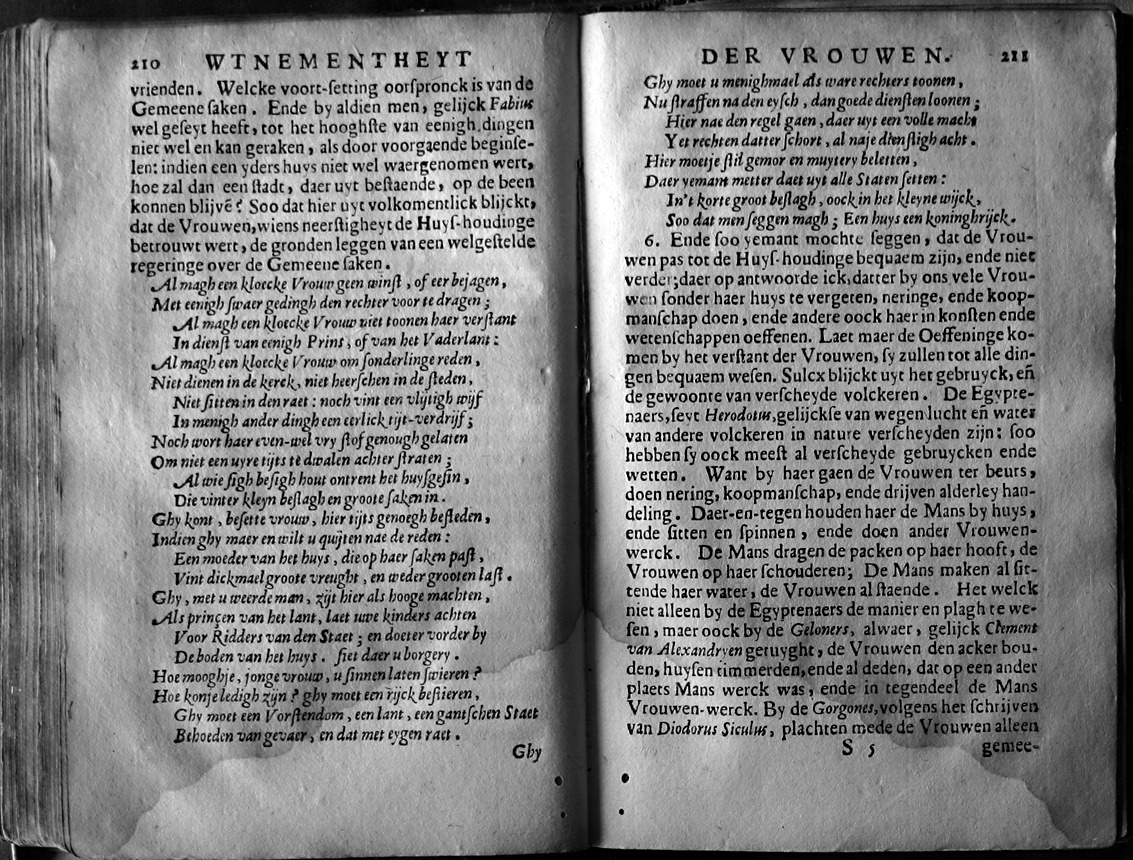 210 WTNEMENTHEYT
vrienden. Welcke voort-ſetting oorſpronck is van de
Gemeene ſaken. Ende by aldien men, gelijck Fabius
wel geſeyt heeft, tot het hooghſte van eenigh dingen
niet wel en kan geraken, als door voorgaende beginſe-
len: indien een yders huys niet wel waergenomen wert,
hoe zal dan een ſtadt, daer uyt beſtaende, op de been
konnen blijvē? Soo dat hier uyt volkomentlick blijckt,
dat de Vrouwen, wiens neerſtigheyt de Huyſ-houdinge
betrouwt wert, de gronden leggen van een welgeſtelde
regeringe over de Gemeene ſaken.
Al magh een kloecke Vrouw geen winſt, of eer bejagen,
Met eenigh ſwaer gedingh den rechter voor te dragen;
Al magh een kloecke Vrouw niet toonen haer verſtant
In dienſt van eenigh Prins, of van het Vaderlant:
Al magh een kloecke Vrouw om ſonderlinge reden,
Niet dienen in de kerck, niet heerſchen in de ſteden,
Niet ſitten in den raet: noch vint een vlijtigh wijf
In menigh ander dingh een eerlick tijt-verdrijf;
Noch wort haer even-wel vry ſtof genough gelaten
Om niet een uyre tijts te dwalen achter ſtraten;
Al wie ſigh beſigh hout ontrent het huyſgeſin,
Die vinter kleyn beſlagh en groote ſaken in.
Ghy kont, beſette vrouw, hier tijts genoegh beſteden,
Indien ghy maer en wilt u quijten nae de reden:
Een moeder van het huys, die op haer ſaken paſt,
Vint dickmael groote vreught, en weder grooten laſt.
Ghy, met u weerde man, zijt hier als hooge machten,
Als prinçen van het lant, laet uwe kinders achten
Voor Ridders van den Staet; en doeter vorder by
De boden van het huys. ſiet daer u borgery.
Hoe mooghje, jonge vrouw, u ſinnen laten ſwieren?
Hoe konje ledigh zijn? ghy moet een rijck beſtieren,
Ghy moet een Vorſtendom, een lant, een gantſchen Staet
Behoeden van gevaer, en dat met eygen raet.
Ghy
DER VROUWEN. 211
Ghy moet u menighmael als ware rechters toonen,
Nu ſtraffen na den eyſch, dan goede dienſten loonen;
Hier nae den regel gaen, daer uyt een volle macht
Yet rechten datter ſchort, al naje dienſtigh acht.
Hier moetje ſtil gemor en muytery beletten,
Daer yemant metter daet uyt alle Staten ſetten:
In't korte groot beſlagh, oock in het kleyne wijck,
Soo dat men ſeggen magh; Een huys een koninghrijck.
6. Ende ſoo yemant mochte ſeggen, dat de Vrou-
wen pas tot de Huyſ-houdinge bequaem zijn, ende niet
verder; daer op antwoorde ick, datter by ons vele Vrou-
wen ſonder haer huys te vergeten, neringe, ende koop-
manſchap doen, ende andere oock haer in konſten ende
wetenſchappen oeffenen. Laet maer de Oeffeninge ko-
men by het verſtant der Vrouwen, ſy zullen tot alle din-
gen bequaem weſen. Sulcx blijckt uyt het gebruyck, eñ
de gewoonte van verſcheyde volckeren. De Egypte-
naers, ſeyt Herodotus, gelijckſe van wegen lucht eñ water
van andere volckeren in nature verſcheyden zijn: ſoo
hebben ſy oock meeſt al verſcheyde gebruycken ende
wetten. Want by haer gaen de Vrouwen ter beurs,
doen nering, koopmanſchap, ende drijven alderley han-
deling. Daer-en-tegen houden haer de Mans by huys,
ende ſitten en ſpinnen, ende doen ander Vrouwen-
werck. De Mans dragen de packen op haer hooft, de
Vrouwen op haer ſchouderen; De Mans maken al ſit-
tende haer water, de Vrouwen al ſtaende. Het welck
niet alleen by de Egyptenaers de manier en plagh te we-
ſen, maer oock by de Geloners, alwaer, gelijck Clement
van Alexandryen getuyght, de Vrouwen den acker bou-
den, huyſen timmerden, ende al deden, dat op een ander
plaets Mans werck was, ende in tegendeel de Mans
Vrouwen-werck. By de Gorgones, volgens het ſchrijven
van Diodorus Siculus, plachten mede de Vrouwen alleen
S 5 gemee-